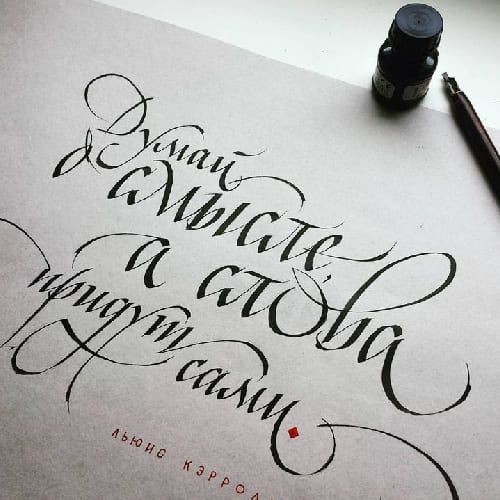 Думай
о смысле,
а слова
придут
сами.
ЛЬЮИС КЭРРОЛ